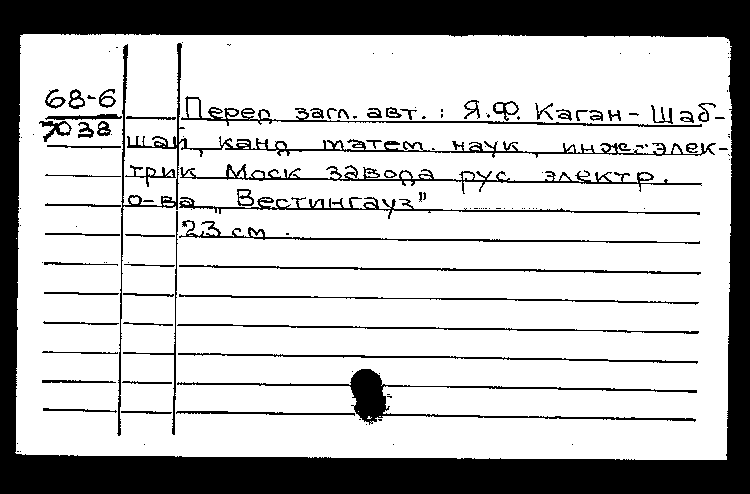 68-6
7038
Перед загл. авт. : Я.Ф. Каган-Шаб-
шай, канд. матем. наук, инж-элек-
трик Моск завода рус электр.
о-ва „Вестингауз"
23 см.